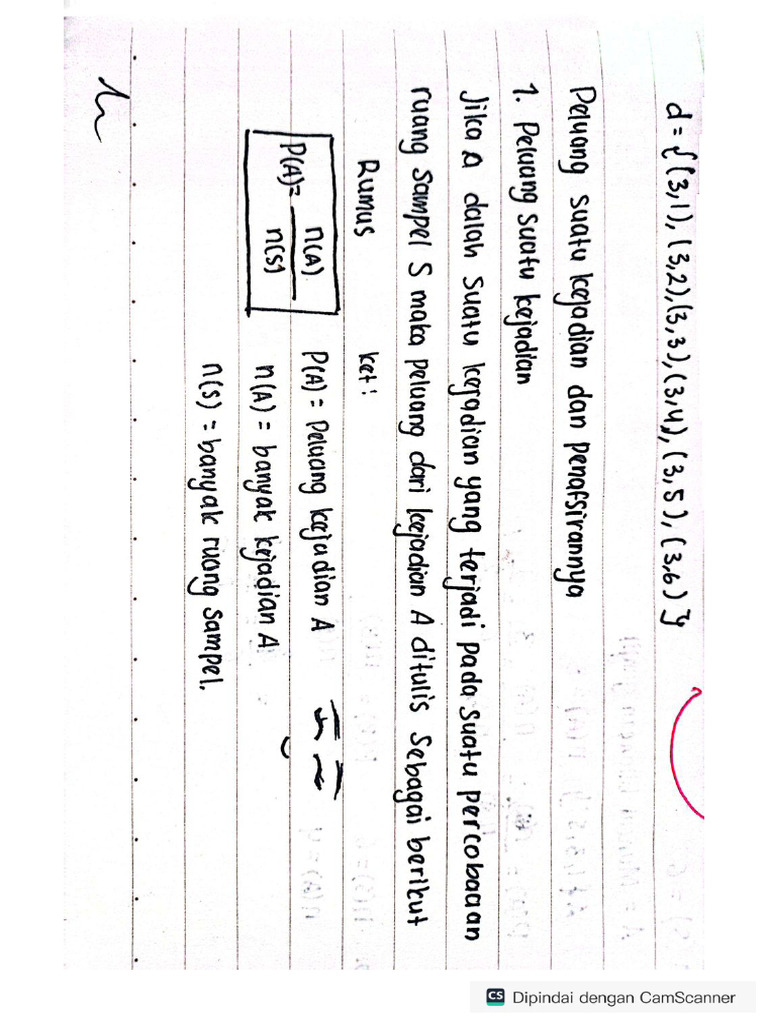 d = {(3,1), (3,2), (3,3), (3,4), (3,5), (3,6)}
Peluang suatu kejadian dan penafsirannya
1. Peluang suatu kejadian
Jika A dalah suatu kejadian yang terjadi pada suatu percobaaan
ruang sampel S maka peluang dari kejadian A ditulis sebagai berikut
Rumus ket:
P(A) = n(A) / n(S)
P(A) = Peluang kejadian A
n(A) = banyak kejadian A
n(S) = banyak ruang sampel.
CS Dipindai dengan CamScanner